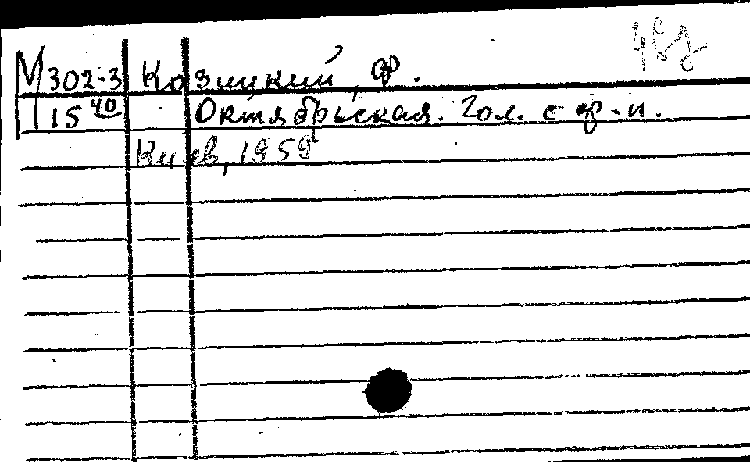 М 302-3 Козицкий, Ф.
15 40 Октябрьская. Гол. с ф-п.
Киев, 1959